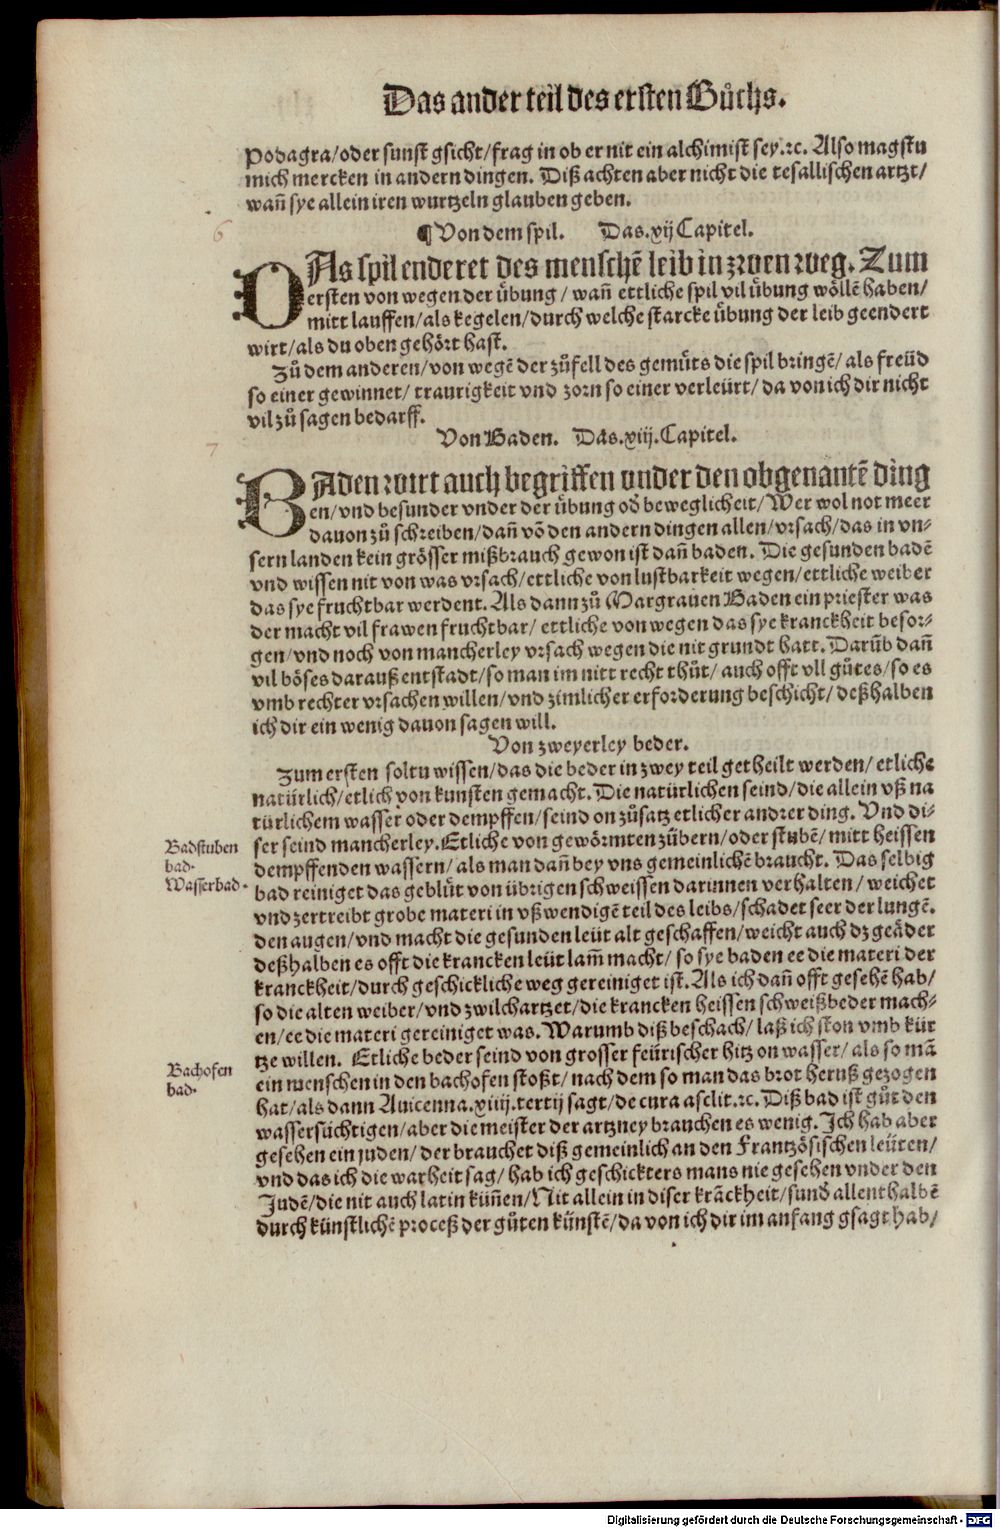 Das ander teil des ersten Bůchs.
podagra/oder sunst gsicht/frag in ob er nit ein alchimist sey.⁊c. Also magstu
mich mercken in andern dingen. Diß achten aber nicht die tesallischen artzt/
wañ sye allein iren wurtzeln glauben geben.
6
¶ Von dem spil. Das.xij Capitel.
DAs spil enderet des menschẽ leib in zwen weg. Zum
ersten von wegen der übung/ wañ ettliche spil vil übung wöllẽ haben/
mitt lauffen/als kegelen/durch welche starcke übung der leib geendert
wirt/als du oben gehört hast.
Zů dem anderen/von wegẽ der zůfell des gemüts die spil bringẽ/als freüd
so einer gewinnet/ traurigkeit vnd zorn so einer verleürt/da von ich dir nicht
vil zů sagen bedarff.
7
Von Baden. Das.xiij.Capitel.
BAden wirt auch begriffen vnder den obgenantẽ ding
en/vnd besunder vnder der übung od̕ beweglicheit/Wer wol not meer
dauon zů schreiben/dañ võ den andern dingen allen/vrsach/das in vn⸗
sern landen kein grösser mißbrauch gewon ist dañ baden. Die gesunden badẽ
vnd wissen nit von was vrsach/ettliche von lustbarkeit wegen/ettliche weiber
das sye fruchtbar werdent. Als dann zů Margrauen Baden ein priester was
der macht vil frawen fruchtbar/ ettliche von wegen das sye kranckheit besor⸗
gen/vnd noch von mancherley vrsach wegen die nit grundt hatt. Darũb dañ
vil böses darauß entstadt/so man im nitt recht thůt/auch offt vll gůtes/so es
vmb rechter vrsachen willen/vnd zimlicher erforderung beschicht/deßhalben
ich dir ein wenig dauon sagen will.
Von zweyerley beder.
Zum ersten soltu wissen/das die beder in zwey teil getheilt werden/ etliche
natürlich/etlich von kunsten gemacht. Die natürlichen seind/die allein vß na
türlichem wasser oder dempffen/seind on zůsatz etlicher andrer ding. Vnd di⸗
ser seind mancherley. Etliche von gewörmten zübern/oder stubẽ/mitt heissen
dempffenden wassern/als man dañ bey vns gemeinlichẽ braucht. Das selbig
bad reiniget das geblüt von übrigen schweissen darinnen verhalten/ weichet
vnd zertreibt grobe materi in vßwendigẽ teil des leibs/schadet seer der lungẽ.
den augen/vnd macht die gesunden leüt alt geschaffen/weicht auch dz geäder
deßhalben es offt die krancken leüt lam̃ macht/ so sye baden ee die materi der
kranckheit/durch geschickliche weg gereiniget ist. Als ich dañ offt gesehẽ hab/
so die alten weiber/vnd zwilchartzet/die krancken heissen schweißbeder mach⸗
en/ee die materi gereiniget was. Warumb diß beschach/ laß ich ston vmb kür
tze willen. Etliche beder seind von grosser feürischer hitz on wasser/als so mã
ein menschen in den bachofen stoßt/nach dem so man das brot heruß gezogen
hat/als dann Auicenna.xiiij.tertij sagt/de cura asclit.⁊c. Diß bad ist gůt den
wassersüchtigen/aber die meister der artzney brauchen es wenig. Ich hab aber
gesehen ein juden/der brauchet diß gemeinlich an den Frantzösischen leüten/
vnd das ich die warheit sag/hab ich geschickters mans nie gesehen vnder den
Judẽ/die nit auch latin küñen/Nit allein in diser krãckheit/sund̕ allenthalbẽ
durch künstlichẽ proceß der gůten künstẽ/da von ich dir im anfang gsagt hab/
Badstuben
bad.
Wasserbad.
Bachofen
bad.
Digitalisierung gefördert durch die Deutsche Forschungsgemeinschaft - DFG